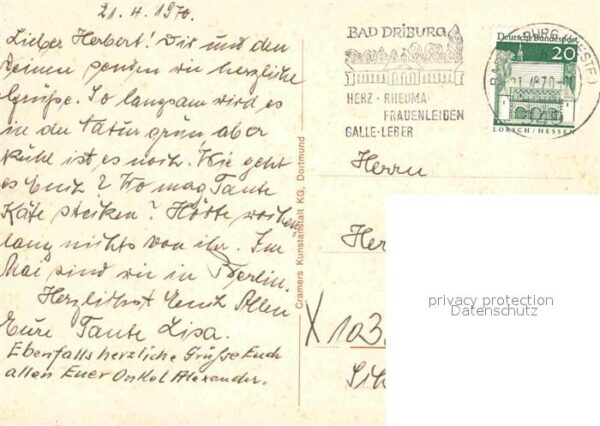 21.4.1970.
Lieber Herbert! Dir und den
Deinen senden wir herzliche
Grüße. So langsam wird es
in der Natur grün aber
kühl ist es noch. Wie geht
es Euch? Wo mag Tante
Käte stecken? Hörte
lang nichts von ihr. Im
Mai sind wir in Berlin.
Herzlichst Euch Allen
Eure Tante Lisa.
Ebenfalls herzliche Grüße Euch
allen Euer Onkel Alexander.
Cramers Kunstanstalt KG, Dortmund
BAD DRIBURG
HERZ · RHEUMA-
FRAUENLEIDEN
GALLE-LEBER
BURG (WESTF)
21.4.70
Deutsche Bundespost
20
LORSCH/HESSEN
Herrn
Her
X 103
privacy protection
Datenschutz